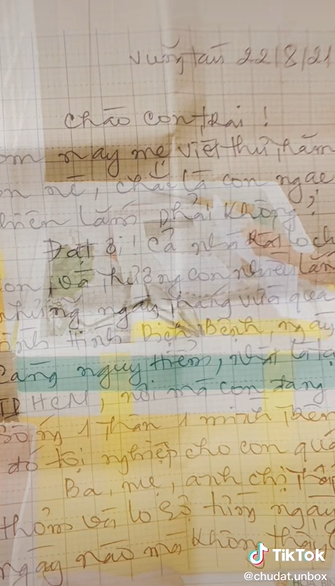 Vũng tàu 22/8/21
Chào con trai !
nay mẹ viết thư thăm
con nè, chắc là con ngạc
nhiên lắm phải không !
Đạt ơi ! cả nhà
con, và thương con nhiều lắm
những ngày tháng vừa qua
tình hình Dịch Bệnh ngày
càng nguy hiểm, nhất là tại
HCM, nơi mà con đang
sống 1 thân 1 mình
đó tội nghiệp cho con quá
Ba, mẹ, anh chị
và lo sợ từng ngày
ngày nào mà không
TikTok
@chudat.unbox